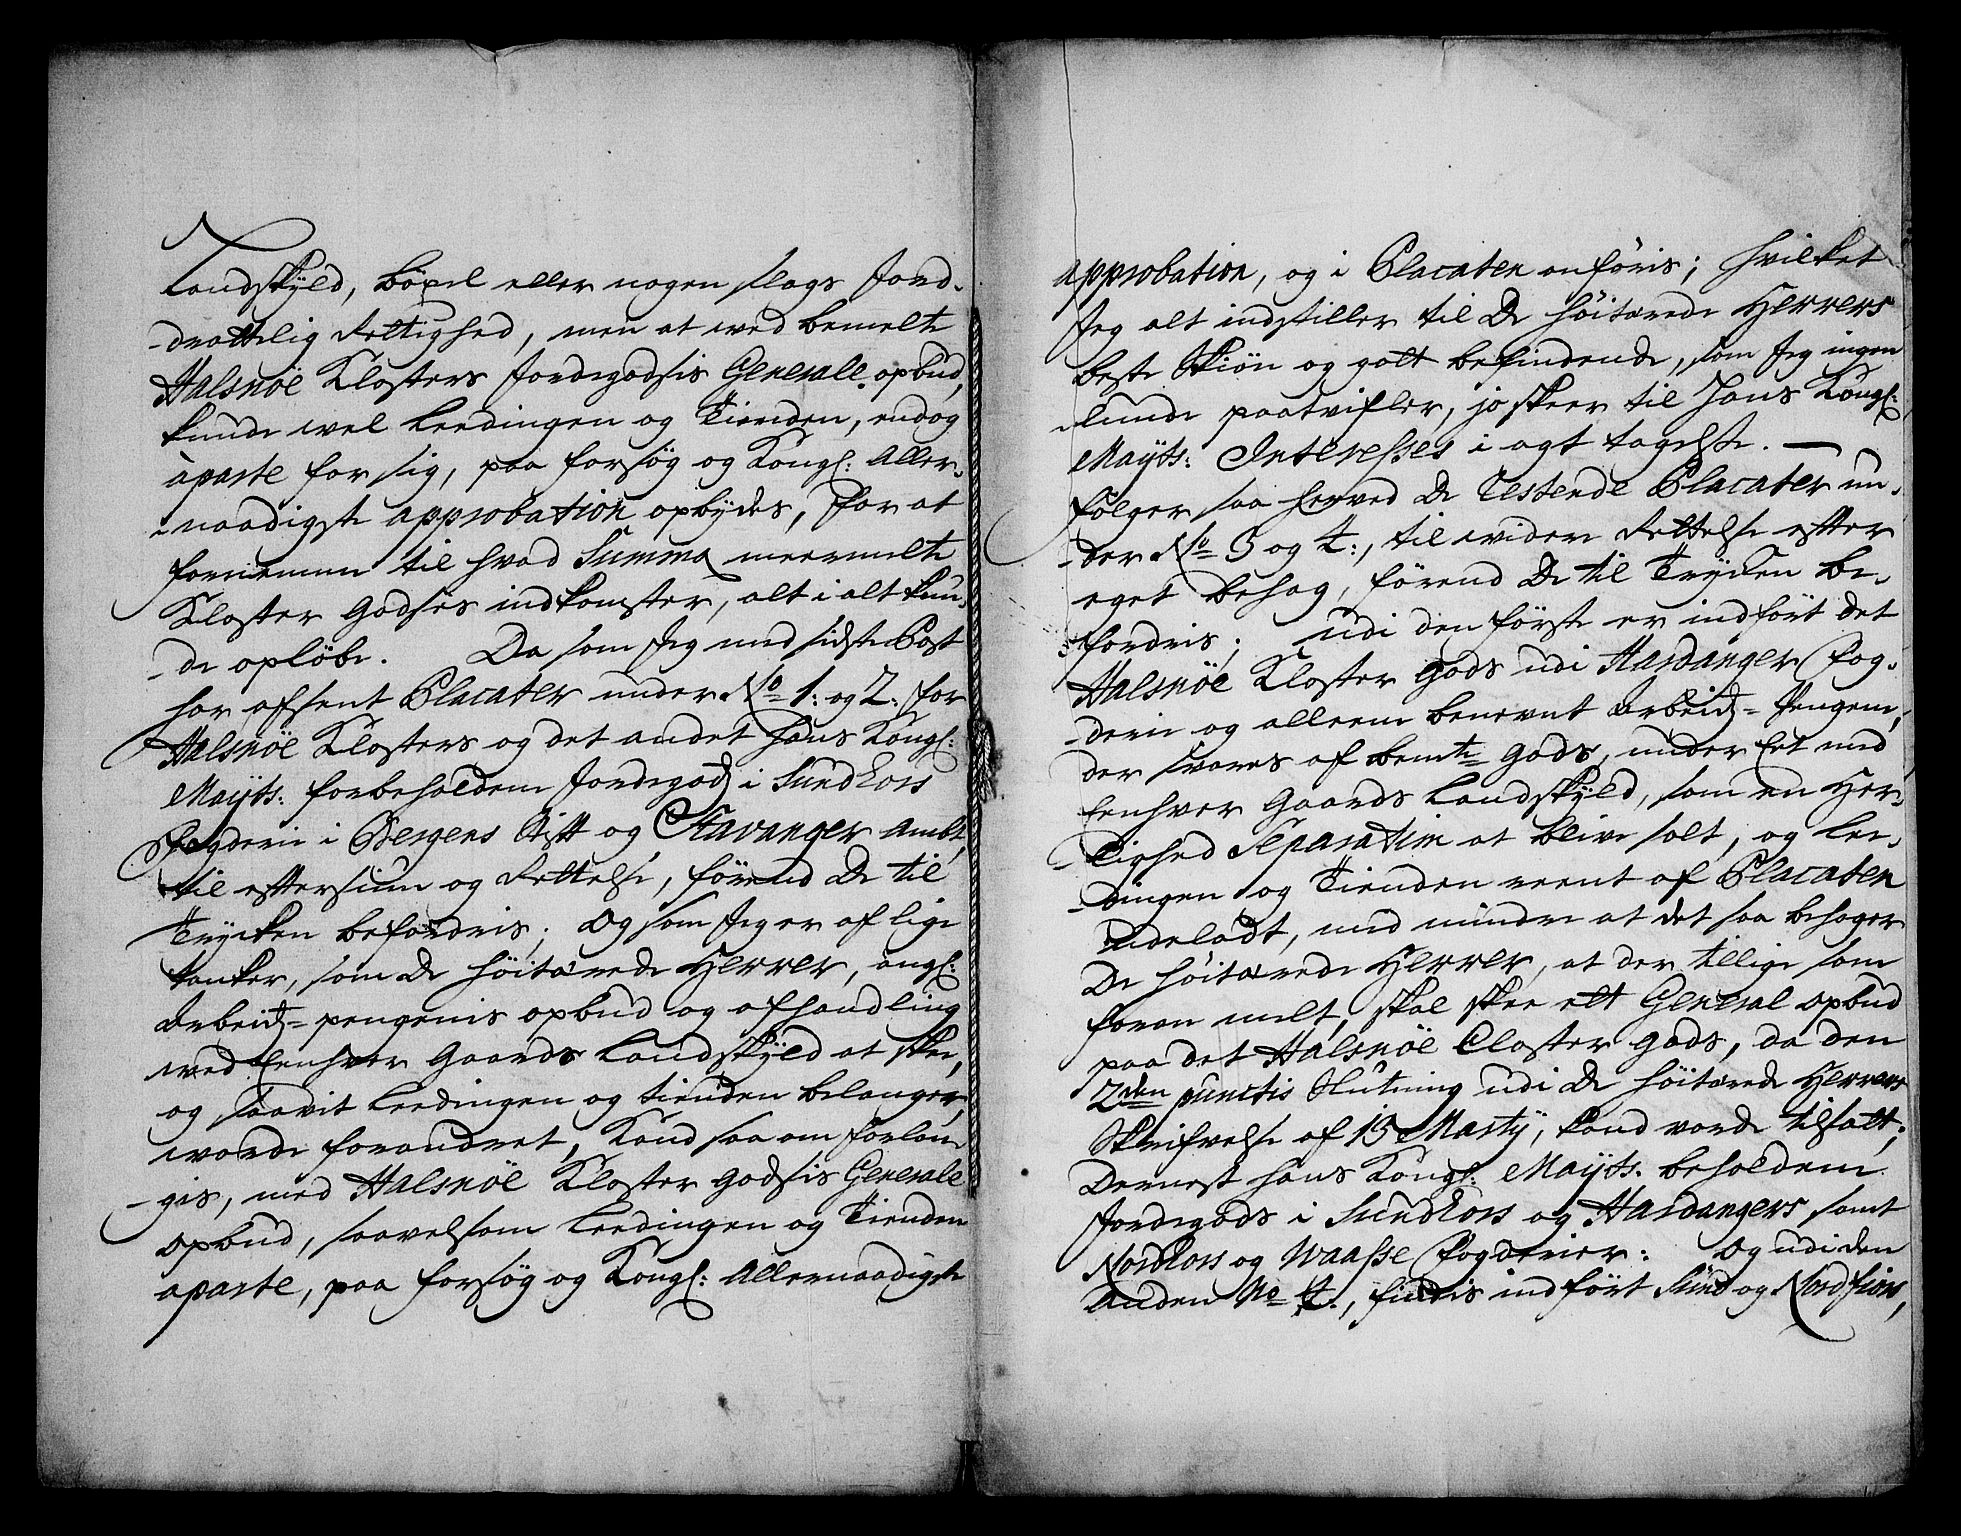 Landskÿld, böxel eller nogen slags Jord-
-drottelig Rettighed, men at wed bemelte
Halsnöe Klosters Jordegodsis Generale opbud,
kunde wel Leedingen og Tienden, endog
àparte for sig, paa forsøg og Kongl: Aller-
-naadigste approbation opbÿdes, for at
fornemme til hvad Summa meermelte
Kloster Godses indkomster, alt i alt kun-
-de opløbe. Da som Jeg med sidste Post
har afsent Placater under No 1: og 2: for
Halsnöe Klosters og det andet Hans Kongl:
Maÿts: forbeholdene Jordegods i Sundhors
Fogderie i Bergens Stift og Stavanger Ambt,
til eftersiun og Rettelse, förend De til
Trÿcken befordris; Og som Jeg er af lige
tanker, som De Höitærede Herrer, angl:
Arbeids-pengenis opbud og afhandling
wed Eenhver Gaards Landskÿld at skee,
og saavit Leedingen og tienden belanger,
worde forandret, Kand saa om forlan-
-gis, med Halsnöe Kloster godsis Generale
opbud, saavelsom Leedingen og Tienden
aparte, paa forsög og Kongl: Allernaadigste
approbation, og i Placaten anföris; hvilket
Jeg alt indstiller til De Höitærede Herrers
beste Skiön og gott befindende, som Jeg ingen-
-lunde paatvifler, jo skeer til Hans Kongl:
Maÿts: Interesses i agt tagelse.
Fölger saa herved De Testende Placater un-
-der No 3 og 4:, til widere Rettelse efter
eget behag, förend De til Trÿcken be-
-fordris; Udi den förste er indfört det
Halsnöe Kloster Gods udi Hardanger Fog-
-derie og alleene benevnt Arbeids-Pengene,
der svares af bemte Gods, under Eet med
Eenhver Gaards Landskÿld, som en Her-
-Lighed Separatim at blive solt, og Lee-
-dingen og Tienden reent af Placaten
udeladt, med mindre at det saa behager
De Höitærede Herrer, at der tillige som
foran melt, skal skee ett General opbud
paa det Halsnöe Closter Gods, da den
2den punctis Slutning udi De Höitærede Herrers
Skrifvelse af 15 Martÿ, kand worde tilsatt;
Dernest Hans Kongl: Maÿts: beholdene
Jordegods i Sundhors og Hardangers samt
Nordhors og Waasse Fogderier: Og udi den
Anden No 4:, findis indfört Sund og Nordfiörs,